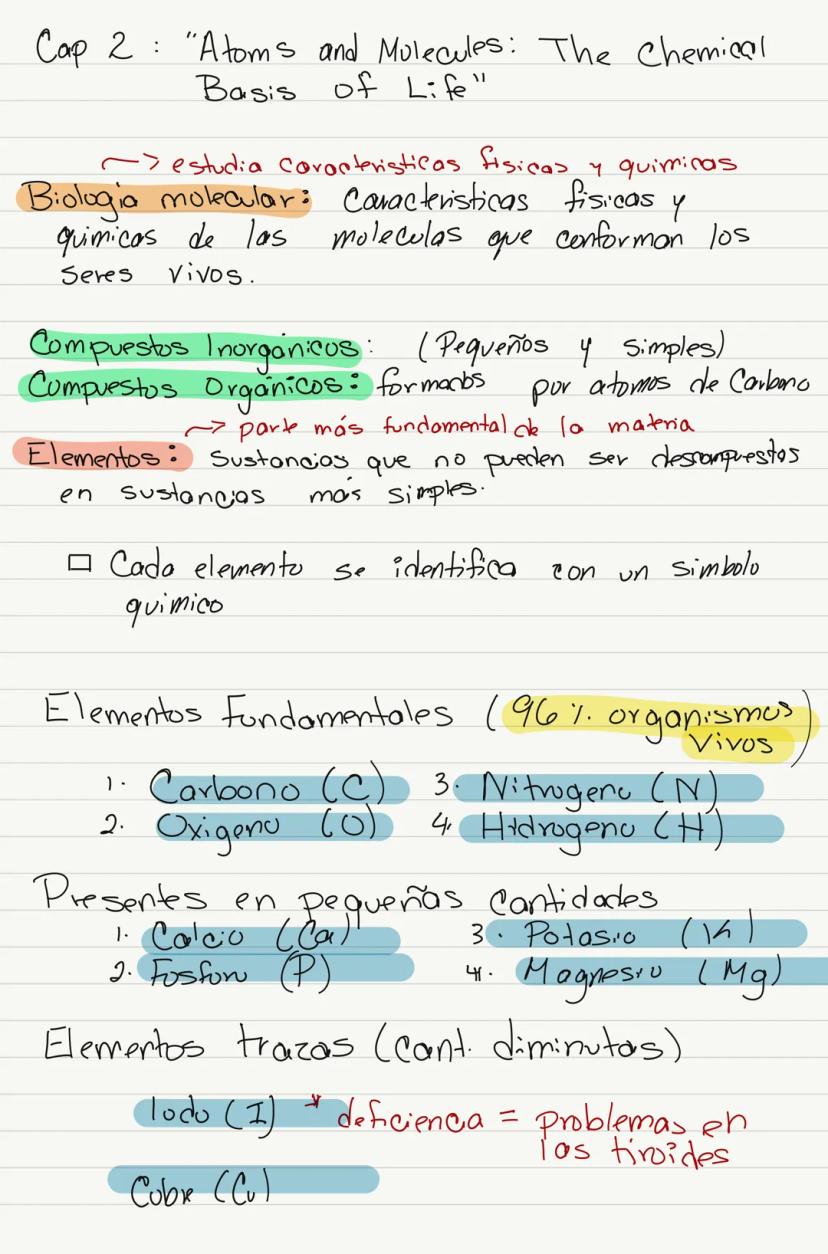 Cap 2 : "Atoms and Molecules: The Chemical
Basis of Life"
~> estudia caracteristicas fisicas y quimicas
Biologia molecular: Caracteristicas fisicas y
quimicas de las moleculas que conforman los
seres vivos.
Compuestos Inorgánicos: (Pequeños y simples)
Compuestos Orgánicos: formados por atomos de Carbono
~> parte más fundamental de la materia
Elementos: Sustancias que no pueden ser descompuestos
en sustancias más simples.
□ Cada elemento se identifica con un simbolo
quimico
Elementos Fundamentales (96 % organismos
vivos)
1. Carbono (C) 3. Nitrogeno (N)
2. Oxigeno (O) 4. Hidrogeno (H)
Presentes en pequeñas cantidades
1. Calcio (Ca) 3. Potasio (K)
2. Fosforo (P) 4. Magnesio (Mg)
Elementos trazas (cant. diminutas)
Iodo (I) * deficienca = problemas en
las tiroides
Cobre (Cu)